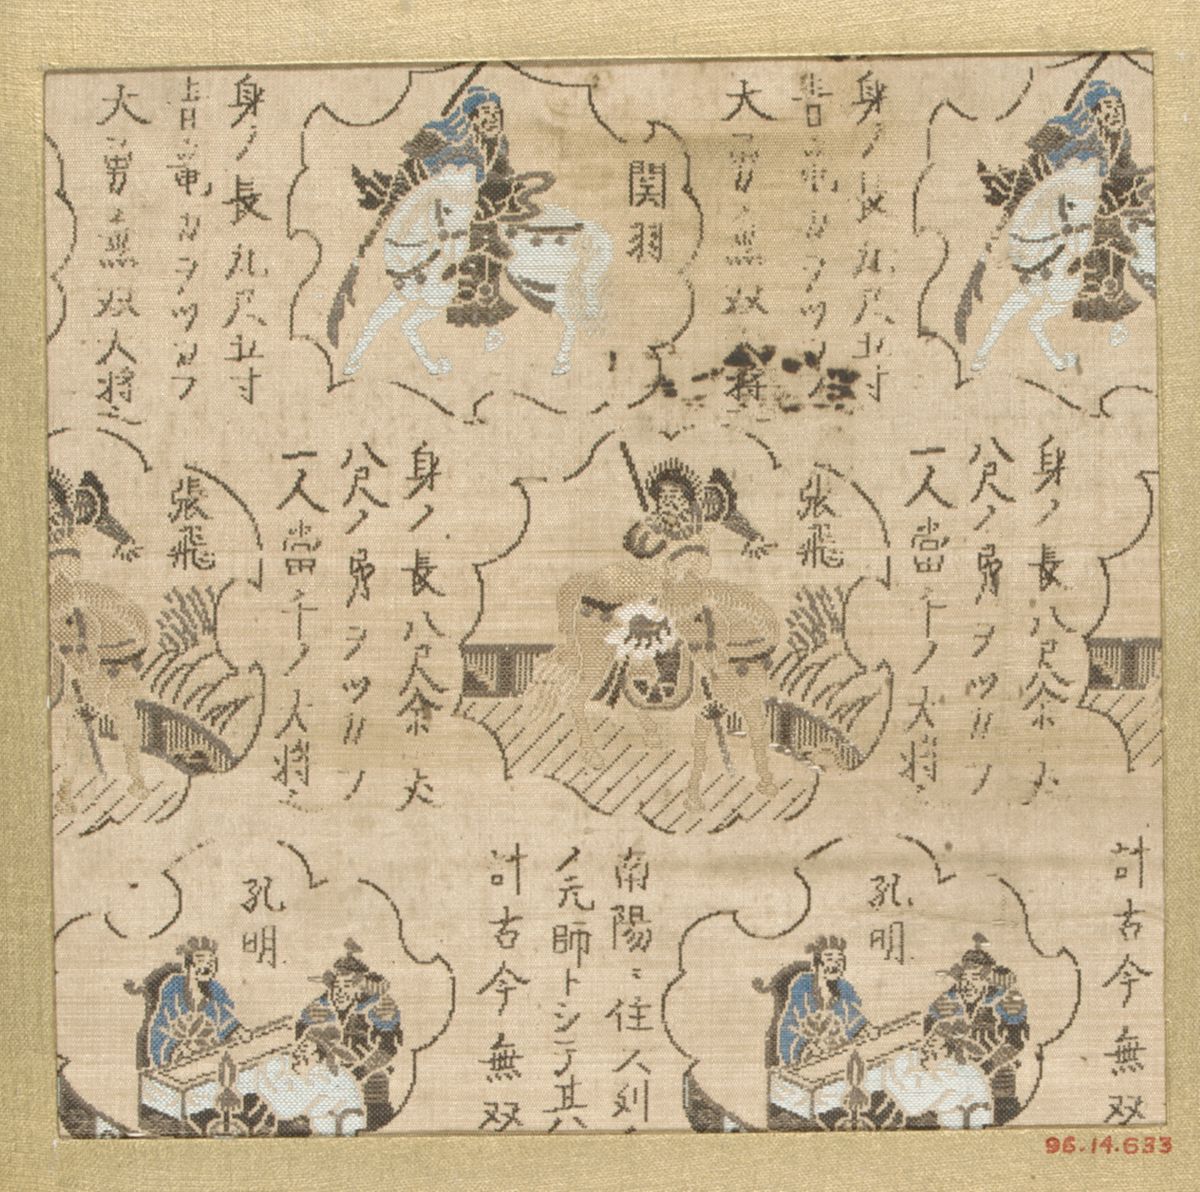 身ノ長九尺五寸
青竜刀ヲツカフ
大勇無双
関羽
身ノ長九尺五寸
青竜刀ヲツカフ
大勇無双大将
身ノ長八尺余
八尺ノ勇ヲ
一人當千ノ大将
張飛
身ノ長八尺余
八尺ノ勇ヲ
一人當千ノ大将
張飛
計古今無双
孔明
南陽ニ住人
ノ元師トシテ其
計古今無双
孔明
96.14.633